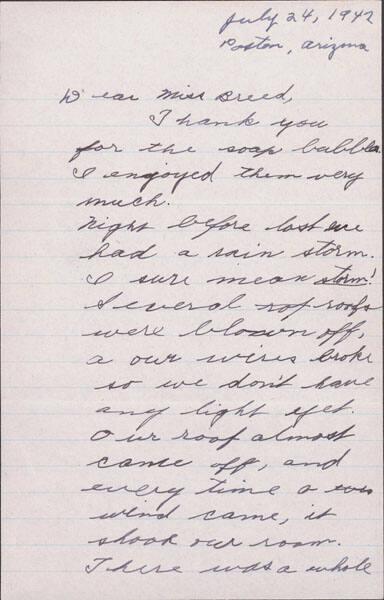 July 24, 1942
Poston, Arizona
Dear Miss Breed,
Thank you
for the soap bubbles
I enjoyed them very
much.
Night before last we
had a rain storm.
I sure mean storm!
Several rof roofs
were blown off,
a our wires broke
so we don't have
any light yet.
Our roof almost
came off, and
every time a
wind came, it
shook our room.
There was a whole